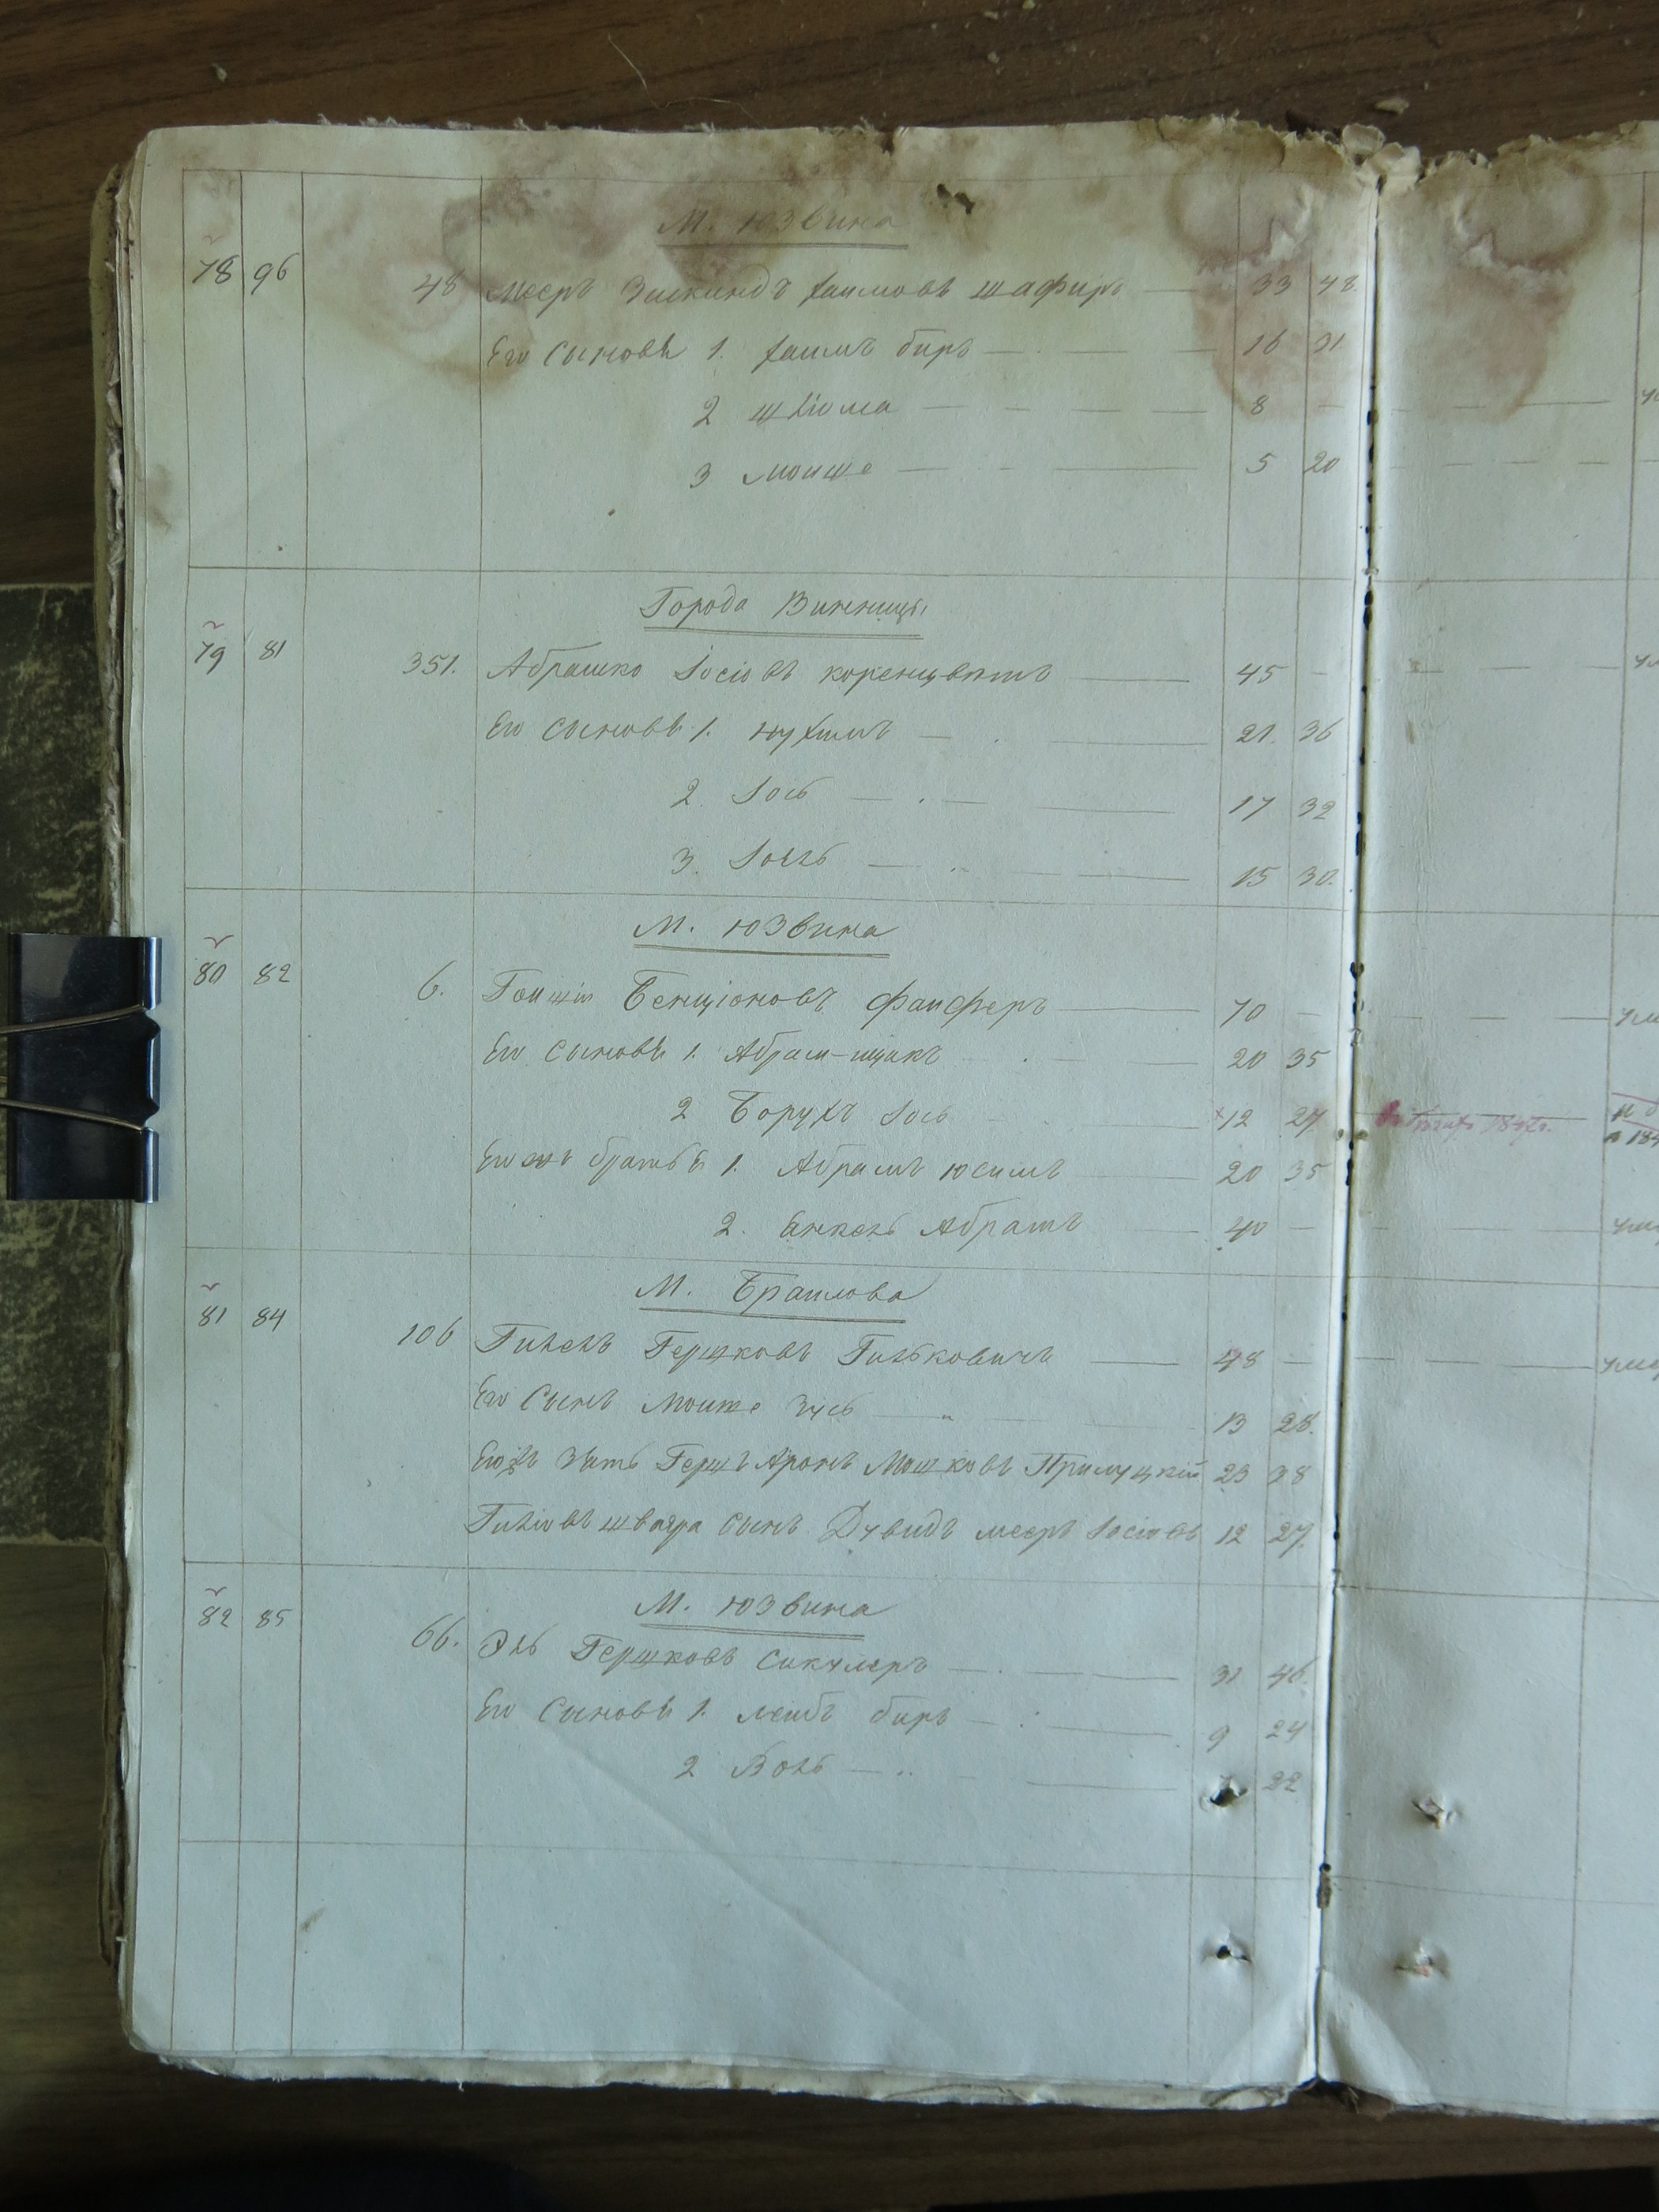 М. Юзвина
78 96 48 Меер Зискиндъ Хаимовъ Шафиръ — 33 48.
Его Сыновья 1. Хаимъ биръ — 16 31
2 Шлiома — 8 —
3 Моише — 5 20
Города Винницы
79 81 351. Абрашко Iосiовъ Коренцвитъ — 45 — —
Его Сыновья 1. Нухимъ — 21. 36
2. Iось — 17 32
3. Iоель — 15 30.
М. Юзвина
80 82 6. Бенцiоновъ Файферъ — 70 — —
Его Сыновья 1. Абрам-ицикъ — 20 35
2 Борухъ Iось 12 27
Его жъ братья 1. Абрамъ Юсимъ — 20 35
2. Абрамъ — 40 — —
М. Браилова
81 84 106 Гилель Гершковъ Гильковичъ — 48 — —
Его Сынъ Моише Зусь — 13 28.
Его жъ Зять Гершъ Аронъ Мошковъ Прилуцкiй 23 38
швагра Сынъ Дувидъ Меер Iосiовъ 12 27.
М. Юзвина
82 85 66. Эль Гершковъ Сикулеръ — 31 46.
Его Сыновья 1. Лейбъ биръ — 9 24
2 Воль — 7 22